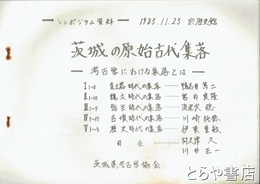 シンポジウム資料 1985.11.23 於歴史館
茨城の原始古代集落
— 考古学における集落とは —
I 先土器時代の集落
II 縄文時代の集落
III 弥生時代の集落 海老沢 稔
IV 古墳時代の集落 川崎純徳
V 歴史時代の集落 伊東重敏
司会 阿久津 久
川井正一
茨城県考古学協会
とらや書店